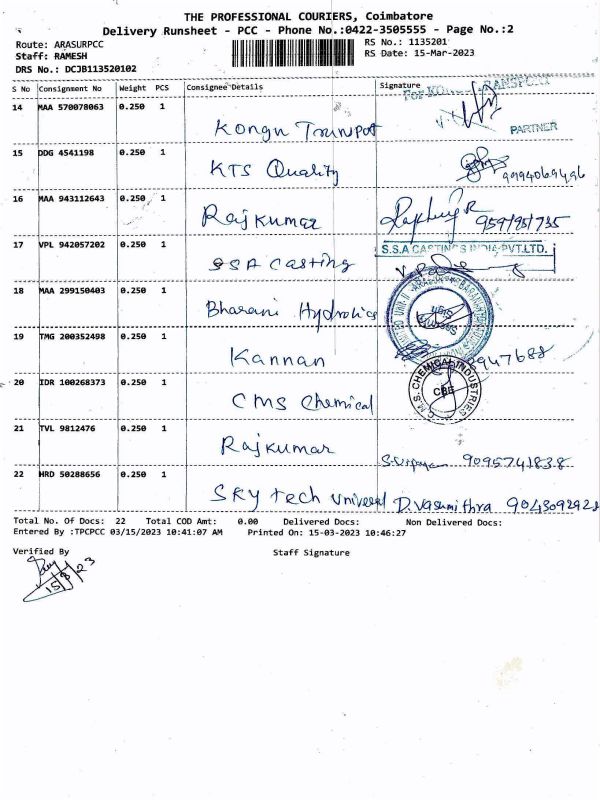 THE PROFESSIONAL COURIERS, Coimbatore
Delivery Runsheet - PCC - Phone No.:0422-3505555 - Page No.:2
Route: ARASURPCC
Staff: RAMESH
DRS No.: DCJB113520102
RS No.: 1135201
RS Date: 15-Mar-2023
S No Consignment No Weight PCS Consignee Details Signature
14 MAA 570078063 0.250 1
Kongu Transpot
PARTNER
15 DDG 4541198 0.250 1
KTS Quality
9994069496
16 MAA 943112643 0.250 1
Rajkumar
17 VPL 942057202 0.250 1
S.S.A CASTINGS INDIA PVT.LTD.
SSA Casting
18 MAA 299150403 0.250 1
Bharani Hydrolics
19 TMG 200352498 0.250 1
Kannan
947688
20 IDR 100268373 0.250 1
CMS Chemical
C.M.S. CHEMICAL INDUSTRIES
CBE
21 TVL 9812476 0.250 1
Rajkumar
9095741838
22 HRD 50288656 0.250 1
SKY tech Universal D. Vasumithra 904309292
Total No. Of Docs: 22 Total COD Amt: 0.00 Delivered Docs: Non Delivered Docs:
Entered By :TPCPCC 03/15/2023 10:41:07 AM Printed On: 15-03-2023 10:46:27
Verified By Staff Signature
15/3/23